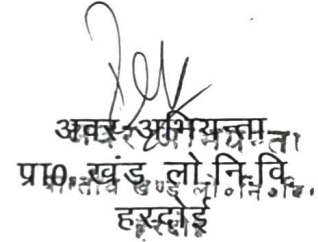 अवर अभियन्ता
प्रा0 खंड लो.नि.वि.
हरदोई